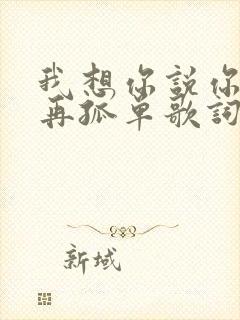 我想你説你
再孤单歌詞
新域